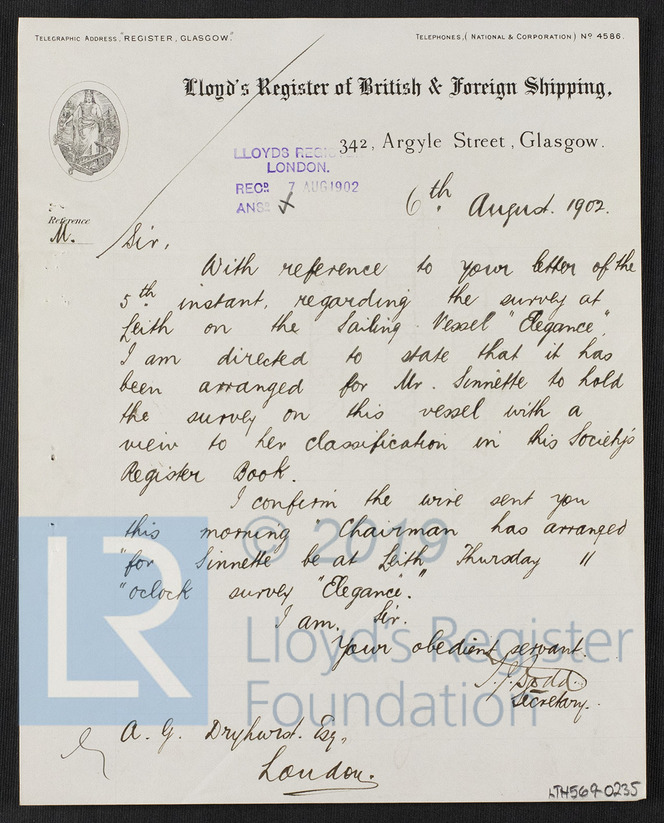 TELEGRAPHIC ADDRESS, "REGISTER, GLASGOW".
TELEPHONES, (NATIONAL & CORPORATION) Nº 4586.
Lloyd's Register of British & Foreign Shipping,
342, Argyle Street, Glasgow.
LLOYDS REGIS
LONDON.
RECD. 7 AUG 1902
ANSD. 4
6th August. 1902.
Reference
M.
Sir,
With reference to your letter of the
5th instant, regarding the survey at
Leith on the Sailing Vessel "Elegance",
I am directed to state that it has
been arranged for Mr. Sinnette to hold
the survey on this vessel with a
view to her classification in this Society's
Register Book.
I confirm the wire sent you
this morning "Chairman has arranged
"for Sinnette be at Leith Thursday 11
"oclock survey "Elegance"."
I am, Sir.
Your obedient servant.
Dodd
Secretary.
A. G. Dryhurst. Esq,
London.
LTH569-0235
© 2019
LR
Lloyd's Register
Foundation